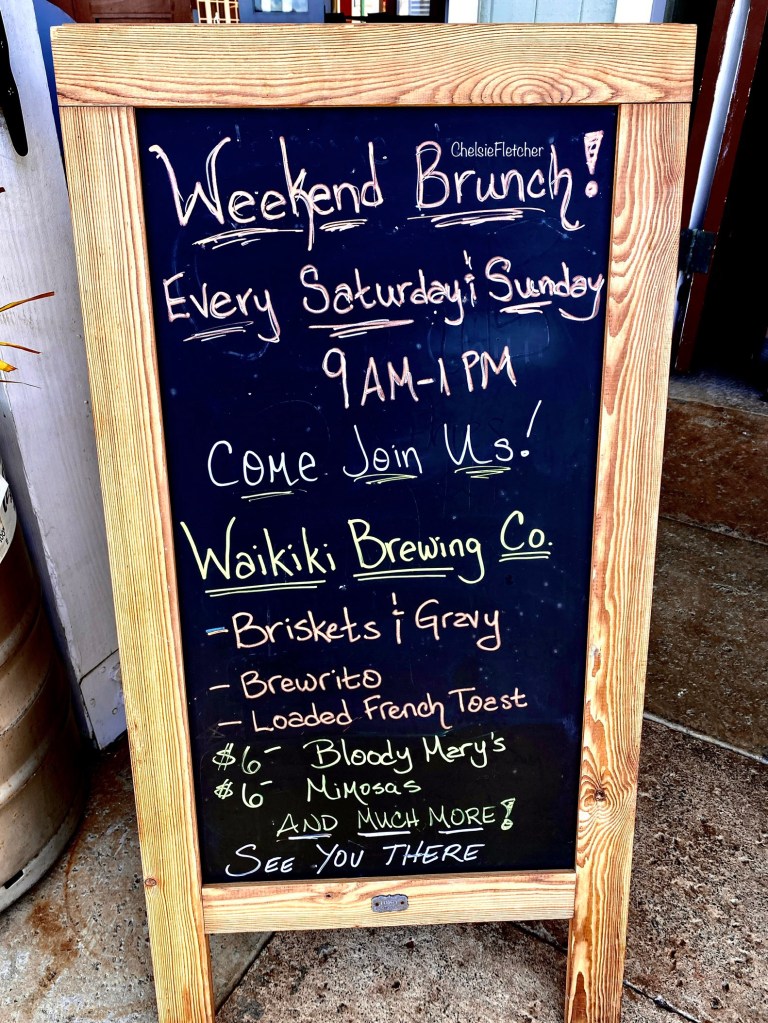 ChelsieFletcher
Weekend Brunch!
Every Saturday & Sunday
9AM-1PM
Come Join Us!
Waikiki Brewing Co.
- Briskets & Gravy
- Brewrito
- Loaded French Toast
$6- Bloody Mary's
$6- Mimosas
AND MUCH MORE!
SEE YOU THERE